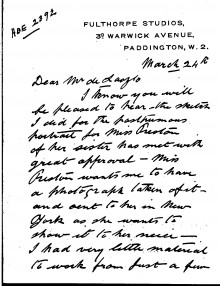 ADE 2392
FULTHORPE STUDIOS,
3ᴬ WARWICK AVENUE,
PADDINGTON, W. 2.
March 24th
Dear Mr de Laszlo
I know you will
be pleased to hear the sketch
I did for the posthumous
portrait for Miss Preston
of her sister has met with
great approval – Miss
Preston wants me to have
a photograph taken of it –
and sent to her in New
York as she wants to
show it to her niece –
I had very little material
to work from just a few